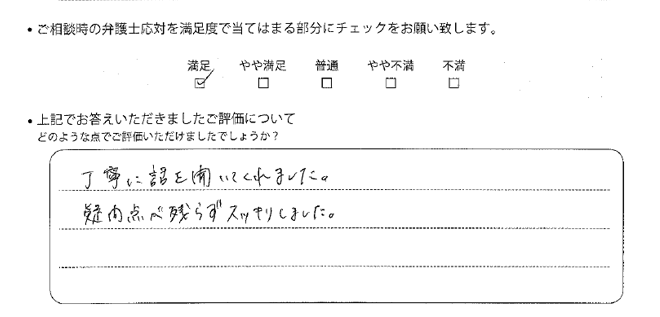 ・ご相談時の弁護士応対を満足度で当てはまる部分にチェックをお願い致します。
満足 やや満足 普通 やや不満 不満
・上記でお答えいただきましたご評価について
どのような点でご評価いただけましたでしょうか？
丁寧に話を聞いてくれました。
疑問点が残らずスッキリしました。